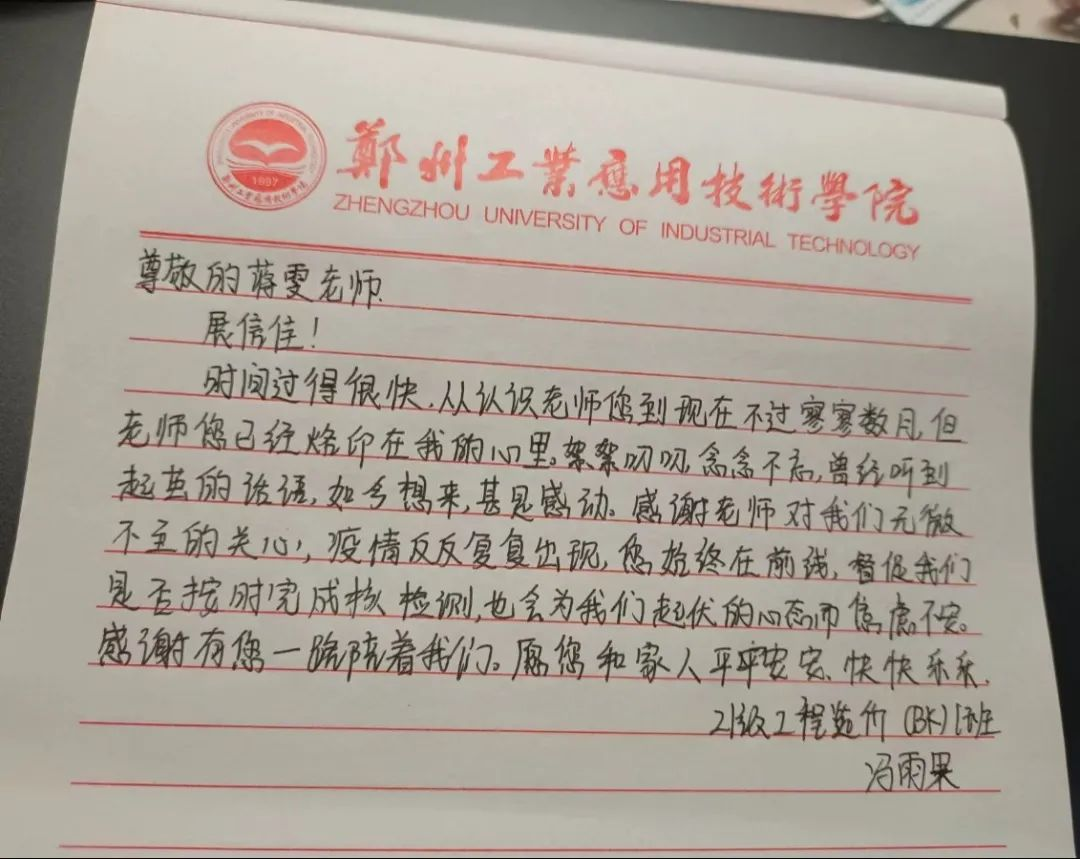 鄭州工業應用技術學院
ZHENGZHOU UNIVERSITY OF INDUSTRIAL TECHNOLOGY
1997
尊敬的蒋雯老师.
展信佳!
时间过得很快.从认识老师您到现在不过寥寥数月,但
老师您已经烙印在我的心里。絮絮叨叨,念念不忘,曾经听到
起茧的话语,如今想来,甚是感动。感谢老师对我们无微
不至的关心,疫情反反复复出现,您始终在前线,督促我们
是否按时完成核检测,也会为我们起伏的心态而焦虑不安。
感谢有您一路陪着我们。愿您和家人平平安安、快快乐乐.
21级工程造价(BK)1班
冯雨果